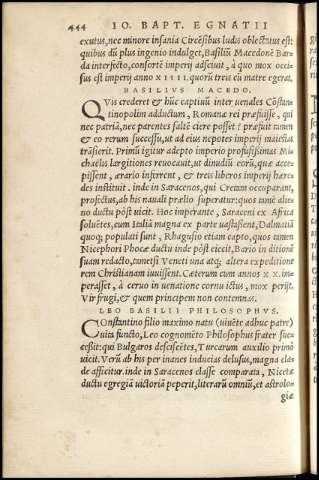 444 IO. BAPT. EGNATII
exutus, nec minore insania Circẽsibus ludis oblectatus est:
quibus dũ plus ingenio indulget, Basiliũ Macedonẽ Bar
da interfecto, consortẽ imperij adsciuit, à quo mox occi
sus est imperij anno XIIII. quorũ treis cũ matre egerat.
BASILIVS MACEDO.
QVis crederet & hũc captiuũ inter uenales Cõstan
tinopolim adductum, Romanæ rei præfuisse, qui
nec patriã, nec parentes saltẽ ciere posset? præfuit tamen
& eo rerum successu, ut ad eius nepotes imperij maiestas
trãsierit. Primũ igitur adepto imperio profusissimas Mi
chaëlis largitiones reuocauit, ut dimidiũ eorũ, quæ acce
pissent, ærario inferrent, & treis liberos imperij hære
des instituit. inde in Saracenos, qui Cretam occuparant,
profectus, ab his nauali prælio superatur: quos tamẽ alte
no ductu pòst uicit. Hoc imperante, Saraceni ex Africa
soluẽtes, cum Italiã magna ex parte uastassent, Dalmatiã
quoq; populati sunt, Rhagusio etiam capto, quos tamen
Nicephori Phocæ ductu inde pòst eiecit, Bario in ditionẽ
suam redacto, tametsi Veneti una atq; altera expeditione
rem Christianam iuuissent. Cæterum cum annos xx. im-
perasset, à ceruo in uenatione cornu ictus, mox perijt.
Vir frugi, & quem principem non contemnas.
LEO BASILII PHILOSOPHVS.
COnstantino filio maximo natu (uiuẽte adhuc patre)
uita functo, Leo cognomẽto Philosophus frater suc
cessit: qui Bulgaros desciscẽtes, Turcarum auxilio primò
uicit. Verũ ab his per inanes inducias delusus, magna cla
de afficitur. inde in Saracenos classe comparata, Nicetæ
ductu egregiã uictoriã peperit, literarũ omniũ, et astrolo
giæ